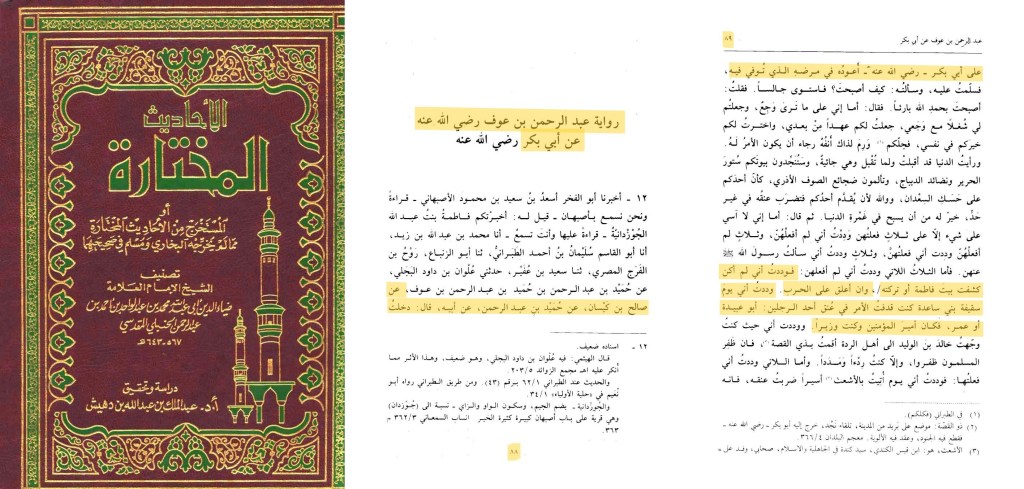 الأحاديث
المختارة
أو
المستخرج من الأحاديث المختارة
مما لم يخرجه البخاري ومسلم في صحيحيهما
تصنيف
الشيخ الإمام العلامة
ضياء الدين أبي عبد الله محمد بن عبد الواحد بن أحمد بن
عبد الرحمن الحنبلي المقدسي
٥٦٧-٦٤٣هـ
دراسة وتحقيق
أ.د. عبد الملك بن عبد الله بن دهيش
رواية عبد الرحمن بن عوف رضي الله عنه
عن أبي بكر رضي الله عنه
١٢ - أخبرنا أبو الفخر أسعدُ بنُ سعيد بن محمود الأصبهاني - قراءةً
ونحن نسمع بأصبهان - قيل له: أخبرتكم فاطمةُ بنتُ عبد الله
الجُوْزْدانيّةُ - قراءة عليها وأنت تسمعُ - أنا محمد بن عبد الله بن ريذه،
أنا أبو القاسم سُلَيْمانُ بنُ أحمد الطَبَرانيُّ، ثنا أبو الزنباع، رَوْحُ بن
الفَرَج المصري، ثنا سعيد بن عُفَيْر، حدثني عُلْوان بن داود البجلي،
عن حُمَيْد بن عبد الرحمن بن حُميد بن عبد الرحمن بن عوف، عن
صالح بن كَيْسان، عن حُمَيد بن عبد الرحمن، عن أبيه، قال: دخلتُ
١٢ - اسناده ضعيف.
قال الهيثمي: فيه عُلْوان بن داود البجلي، وهو ضعيف، وهذا الأثر مما
أنكر عليه اهـ مجمع الزوائد ٢٠٣/٥.
والحديث عند الطبراني ٦٢/١ برقم (٤٣). ومن طريق الطبراني رواه أبو
نُعيم في «حلية الأولياء» ٣٤/١.
والجُوزْدانية - بضم الجيم، وسكون الواو والزاي - نسبة الى (جُوْزدان)
وهي قرية على باب أصبهان كبيرة كثيرة الخير انساب السمعاني ٣٦٢/٣ -
٣٦٣.
٨٨
عبد الرحمن بن عوف عن أبي بكر
٨٩
على أبي بكر - رضي الله عنه - أعودُه في مرضهِ الذي تُوفي فيه،
فسلّمتُ عليه، وسألتُه: كيف أصبحتَ؟ فاستوى جالساً. فقلتُ:
أصبحتَ بحمدِ الله بارئاً. فقال: أما إني على ما ترىٰ وَجِعٌ، وجعلتُم
لي شُغلاً مع وَجَعي، جعلت لكم عهداً مِنْ بعدي، واخترتُ لكم
خيركم في نفسي، فجلّكم وَرِمَ لذاك أنفُه رجاء أن يكون الأمرُ لهُ.
ورأيتُ الدنيا قد أقبلتْ ولما تُقْبِل وهي جائيةٌ، وستُنَجِّدون بيوتكم ستورَ
الحرير ونضائد الديباج، وتألمون ضجائع الصوف الأذري، كأنّ أحدَكم
على حَسَكِ السعْدان، ووالله لأن يُقدَّم أحدُكم فتضرب عنقه في غير
حَدٍّ، خيرٌ له من أن يسيح في غَمْرة الدنيا. ثم قال: أما إني لا آسي
على شيءٍ إلّا على ثلاثٍ فعلتُهن وَدِدْتُ أني لم أفعلْهُنّ، وثلاثٍ لم
أفعلهن وددتُ أني فعلتهنّ، وثلاثٍ وددتُ أني سألتُ رسولَ الله ﷺ
عنهن. فأما الثلاثُ اللاتي وددتُ أني لم أفعلهن: فوددتُ أني لم أكن
كشفت بيتَ فاطمة أو تركته/، وان أغلق على الحرب. وددتُ أني يوم
سقيفة بني ساعدة كنت قذفتُ الأمر في عُنق أحد الرجلين: أبو عبيدة
أو عمر، فكان أميرَ المؤمنين وكنت وزيرا. ووددت أني حيث كنتُ
وجّهتُ خالدَ بن الوليد الى أهل الردة أقمتُ بذي القصة، فان ظفر
المسلمون ظفروا، وإلّا كنتُ رِدْءاً وَمَدَداً. وأما اللاتي وددتُ أني
فعلتُها: فوددتُ أني يوم أُتيتُ بالأشعثِ أسيراً ضربتُ عنقه، فانه
(١) في الطبراني (فكلكم).
(٢) ذو القَصَّة: موضع على بَريد من المدينة، تلقاء نَجْد، خرج إليه أبو بكر - رضي الله عنه -
فقطع فيه الجنود، وعقد فيه الألوية. معجم البلدان ٣٦٦/٤.
(٣) الأشعث، هو: ابن قيس الكندي، سيد كندة في الجاهلية والاسلام، صحابي، وفد على -